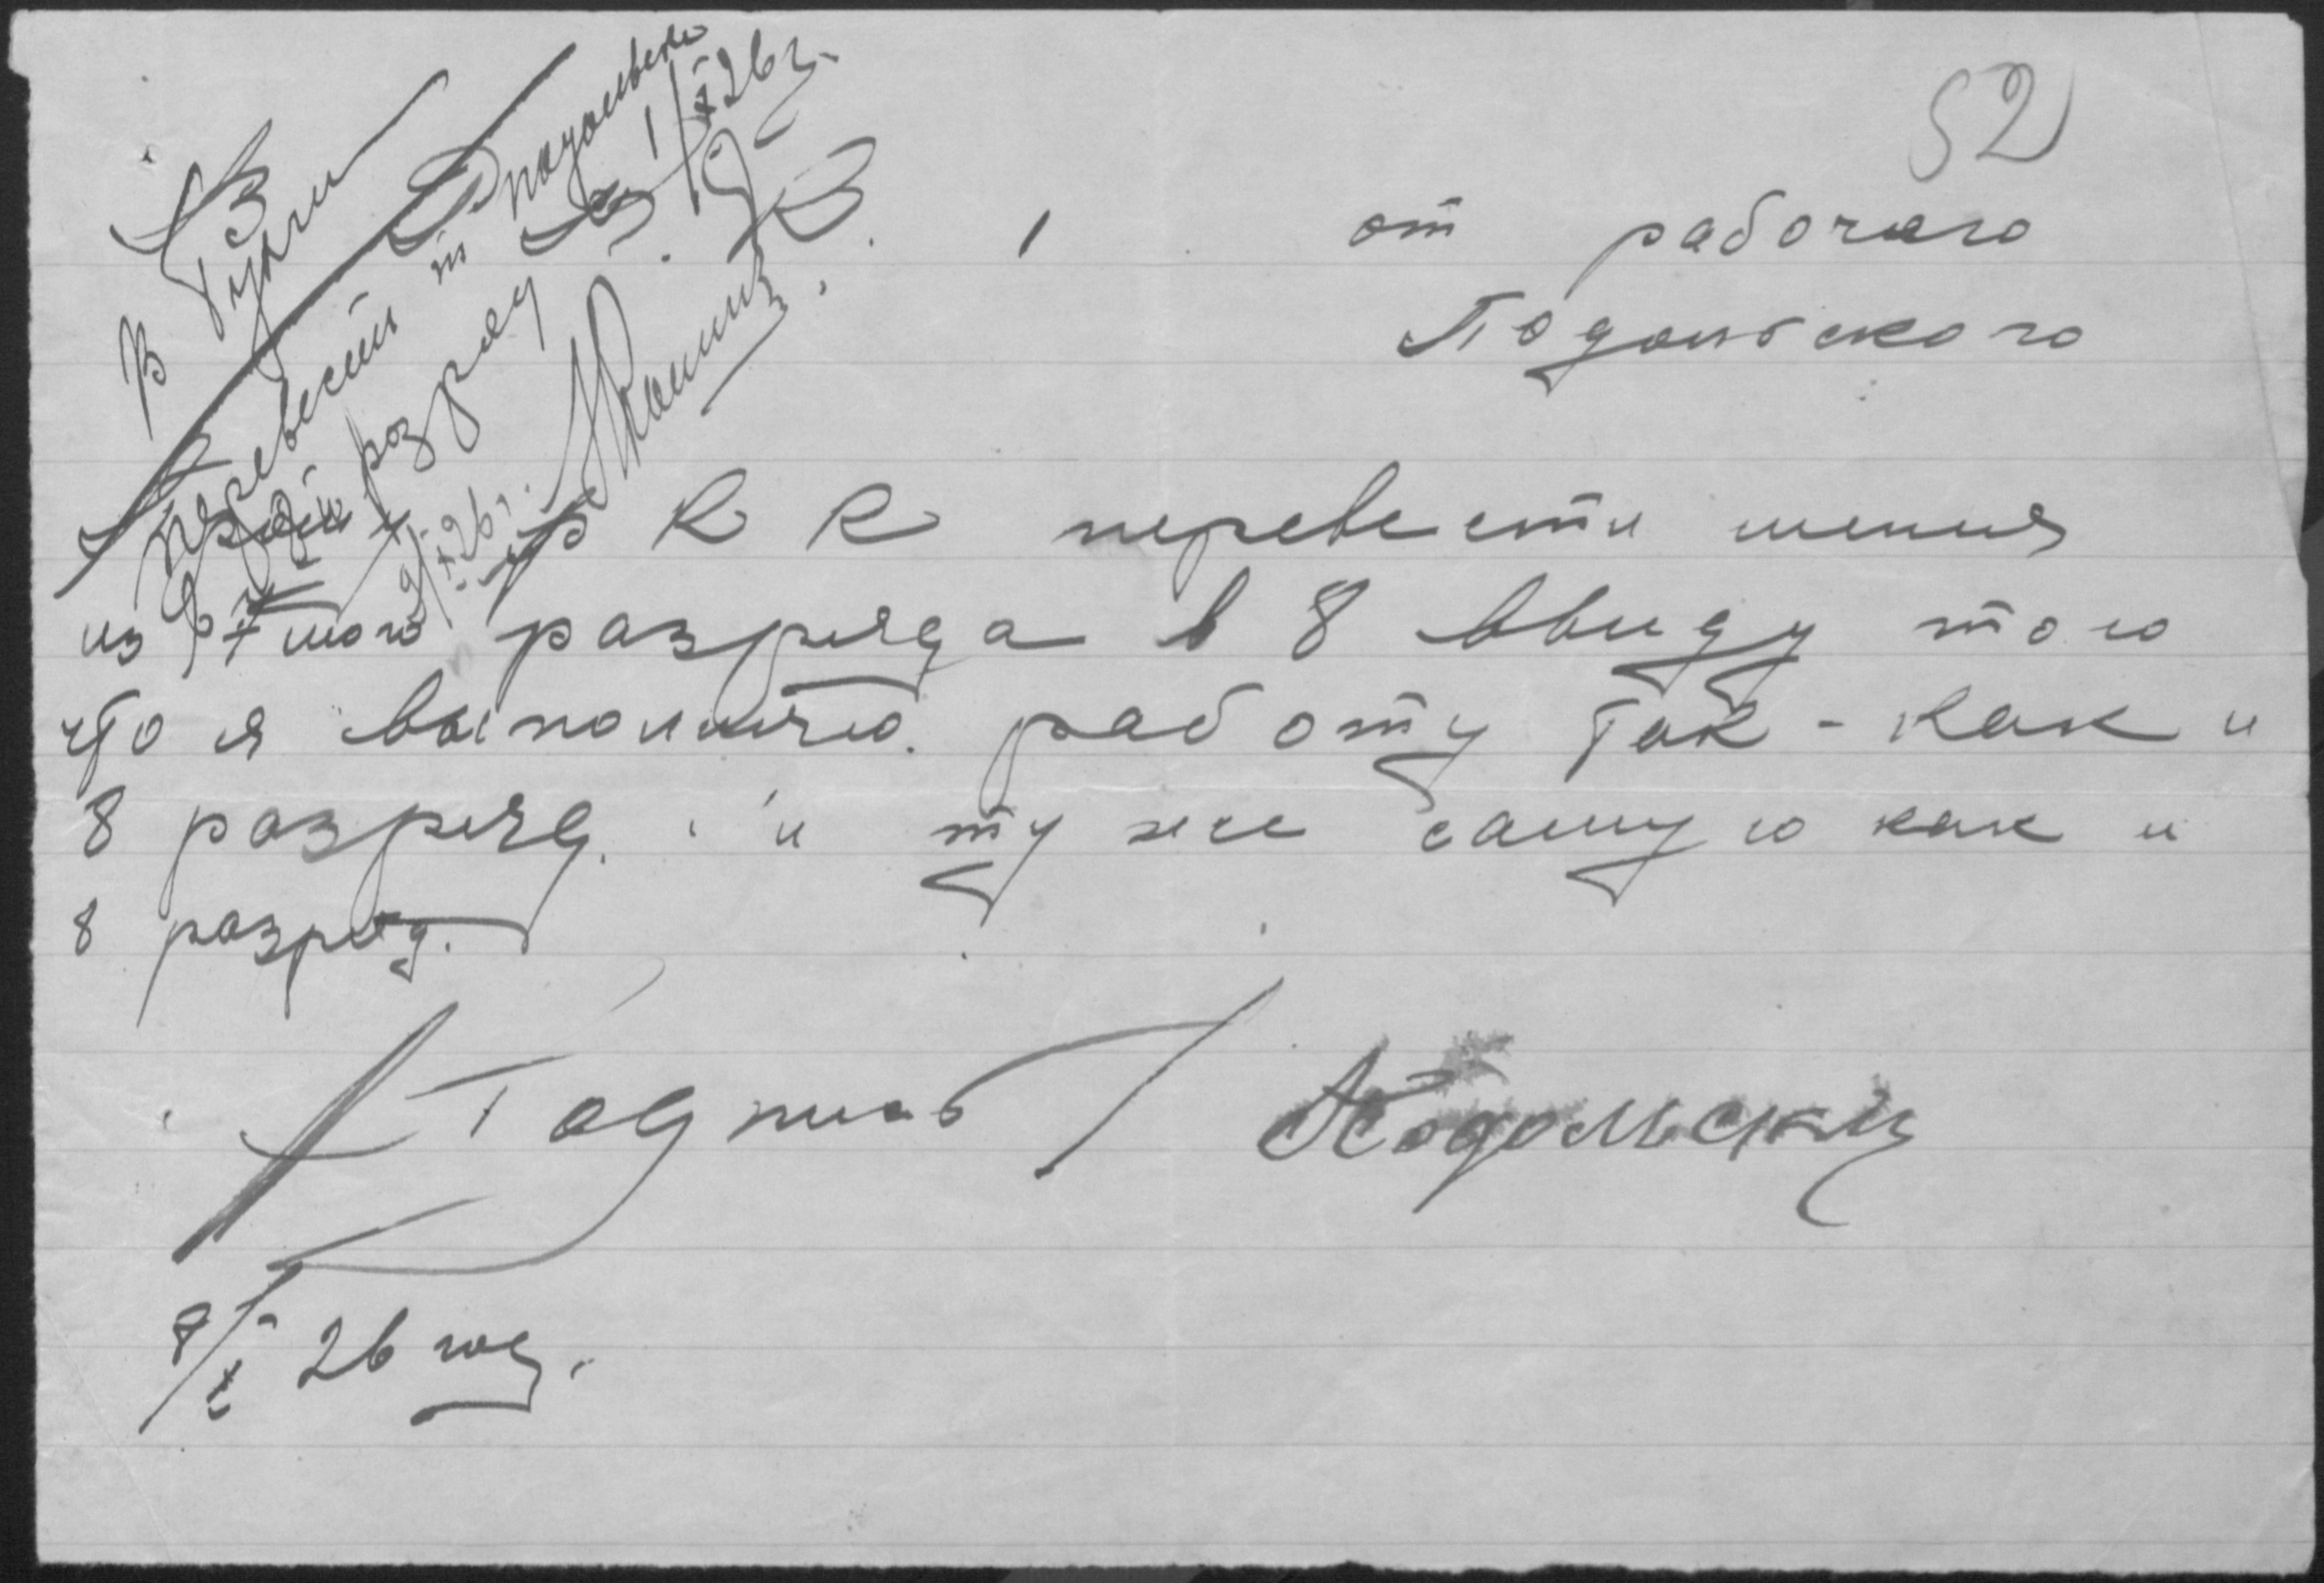 52
от рабочего
Подольского
В
перевести т. Подольского
разряд с 1/X 26 г.
9/X 26 г.
Прошу РКК перевести меня
из 7 мого разряда в 8 ввиду того
что я выполняю работу так-как и
8 разряд. и ту же самую как и
8 разряд.
Подпись Подольский
8/X 26 год.